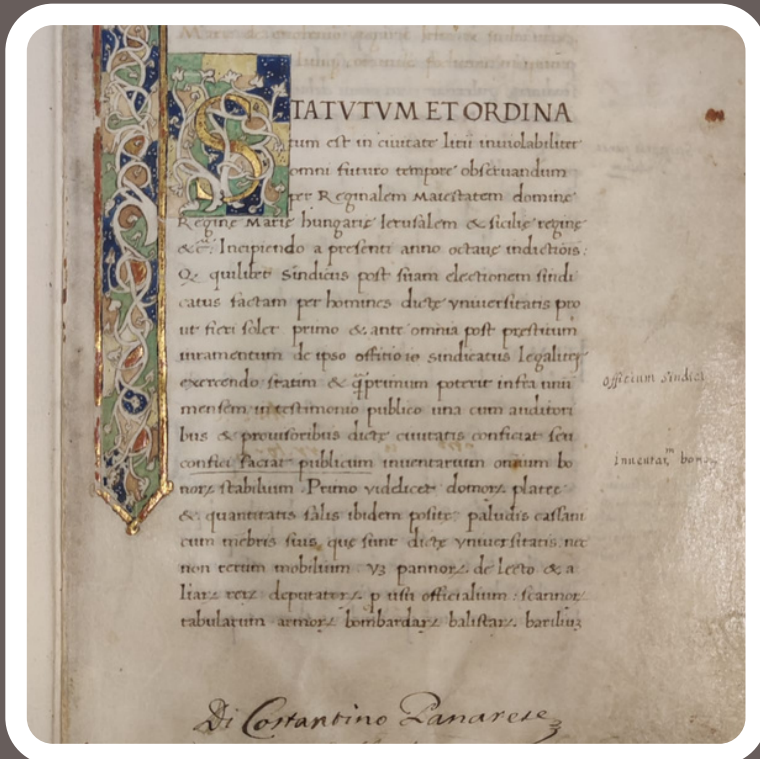 STATVTVM ET ORDINA
tum est in ciuitate litii inuiolabiliter
omni futuro tempore obseruandum
per Reginalem Maiestatem domine
Regine Marie hungarie Ierusalem & sicilie regine
&c. Incipiendo a presenti anno octaue indictiois:
Q quilibet Sindicus post suam electionem sindi
catus factam per homines dicte yniuersitatis pro
ut fieri solet primo & ante omnia post prestitum
iuramentum de ipso offitio sindicatus legaliter
exercendo statim & qprimum poterit infra unu
mensem in testimonio publico una cum auditori
bus & prouisoribus dicte ciuitatis conficiat seu
confici faciat publicum inuentarium omnium bo
noꝝ stabilium. Primo videlicet domoꝝ platee
& quantitatis salis ibidem posite: paludis cassani
cum mebris suis, que sunt dicte yniuersitatis nec
non rerum mobilium vꝫ pannoꝝ de lecto & a
liaꝝ reꝝ deputataꝝ p usu officialium: scannoꝝ
tabularum armoꝝ bombardaꝝ balistaꝝ bariliuꝫ
officium sindici
Inuentaꝝ bon
Di Costantino Panarese